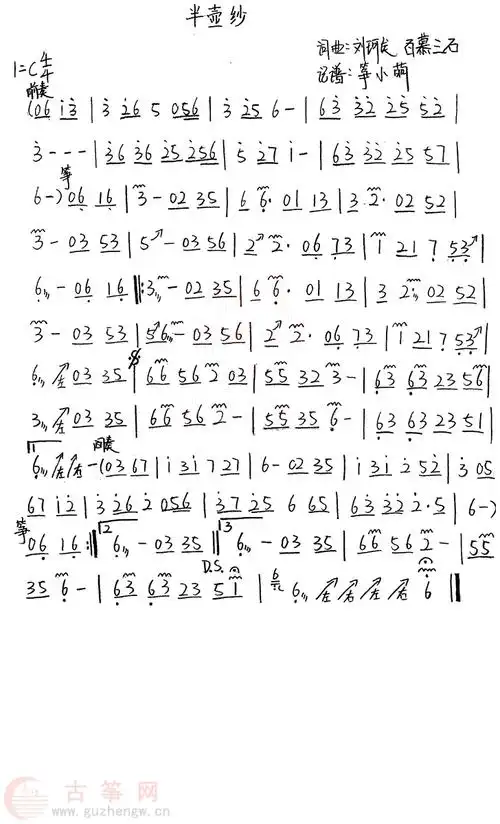 半壶纱
词曲:刘珂矣 百慕三石
1=C 4/4
记谱:筝小萌
前奏
(06 i3 | 3 26 5 056 | 3 25 6 - | 63 32 25 52 |
3 - - - | 36 36 25 256 | 5 27 i - | 63 32 25 57 |
筝
6 - ) 06 16 | 3 - 02 35 | 6 6· 01 13 | 3 2· 02 52 |
3 - 03 53 | 5 - 03 56 | 2 2· 06 73 | 1 21 7 53 |
6 - 06 16 ‖: 3 - 02 35 | 6 6· 01 13 | 3 2· 02 52 |
3 - 03 53 | 56 - 03 56 | 2 2· 06 73 | 1 21 7 53 |
6 左 03 35 | 66 56 2 03 | 55 32 3 - | 63 63 23 56 |
3 左 03 35 | 66 56 2 - | 55 35 6 - | 63 63 23 51 |
1 间奏
6 左右 - (03 67 | i 3i 7 27 | 6 - 02 35 | i 3i 2 52 | 3 05
67 i2 | 3 26 2 056 | 37 25 6 65 | 63 32 2·5 | 6 - )
筝
06 16 :‖ 2 6 - 03 35 ‖ 3 6 - 03 35 | 66 56 2 - | 55
D.S.
35 6 - | 63 63 23 51 | 6 左右左右 6 ‖
古筝网
www.guzhengw.cn